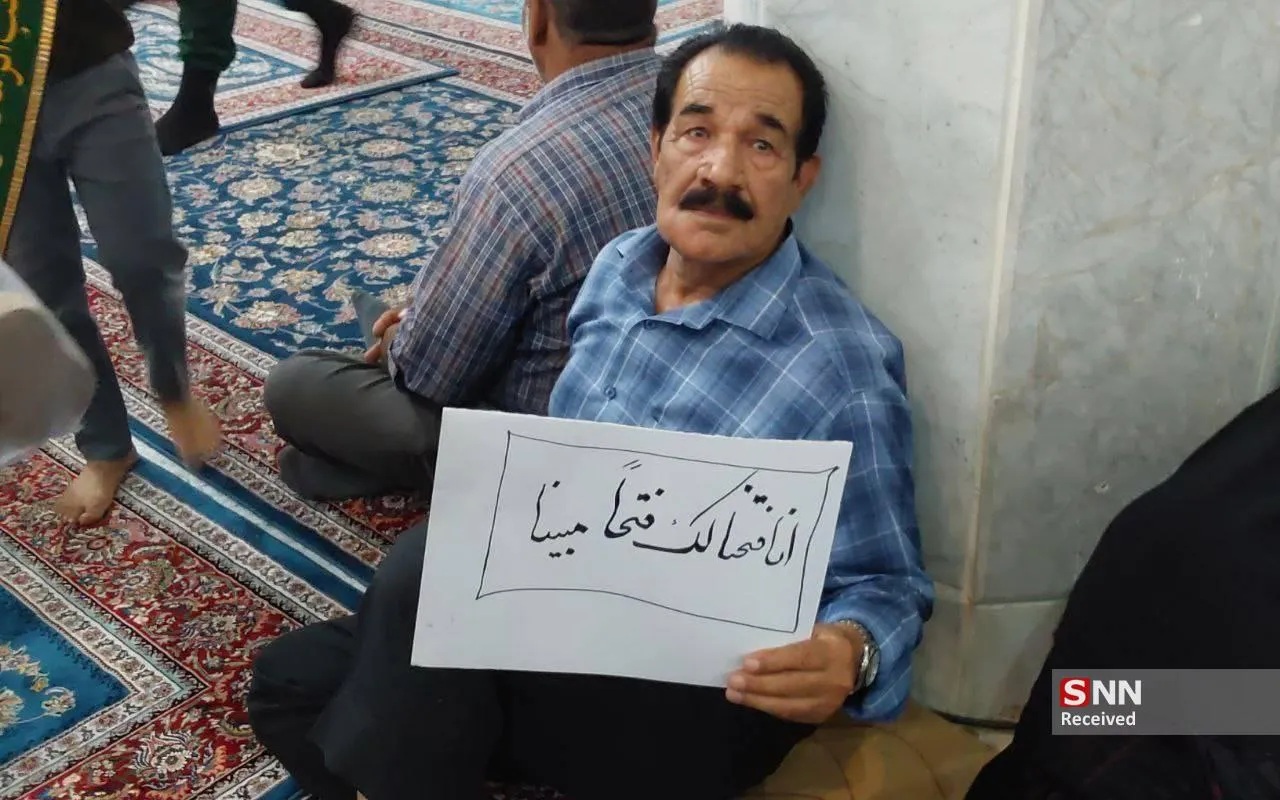 انا فتحنا لک فتحاً مبینا
SNN
Received